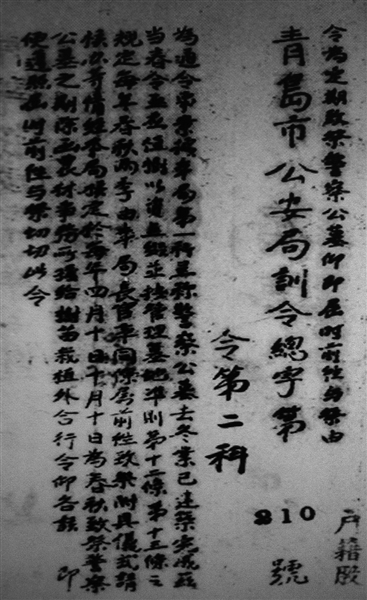 令為定期致祭警察公墓仰即屆时前往与祭由
戶籍股
青島市公安局訓令總字第 210 號
令第二科
為通令事案據本局第一科呈称警察公墓去冬業已建築完成茲
当春令正宜植樹以資点缀並按管理墓地準則第十二條第十三條之
規定每年春秋兩季由本局長官率同僚属前往致祭附具儀式請
候示等情經本局定於每年四月十日十月十日為春秋致祭警察
公墓之期除函農林事務所撥給樹苗栽植外合行令仰各該 即
便遵照届时前往与祭切切此令